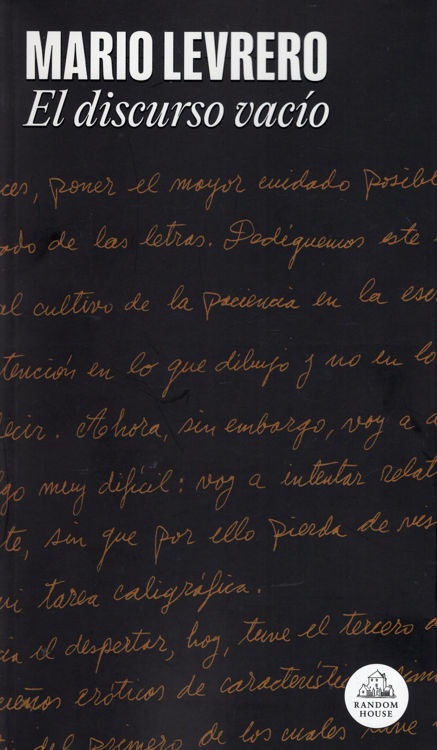 MARIO LEVRERO
El discurso vacío
ces, poner el mayor cuidado posibl
ado de las letras. Dediquemos este
al cultivo de la paciencia en la esc
tención en lo que dibujo y no en lo
decir. Ahora, sin embargo, voy a
lgo muy difícil: voy a intentar relat
te, sin que por ello pierda de vis
mi tarea caligráfica.
cia el despertar, hoy, tuve el tercero
ueños eróticos de características
del primero de los cuales tuve
RANDOM
HOUSE